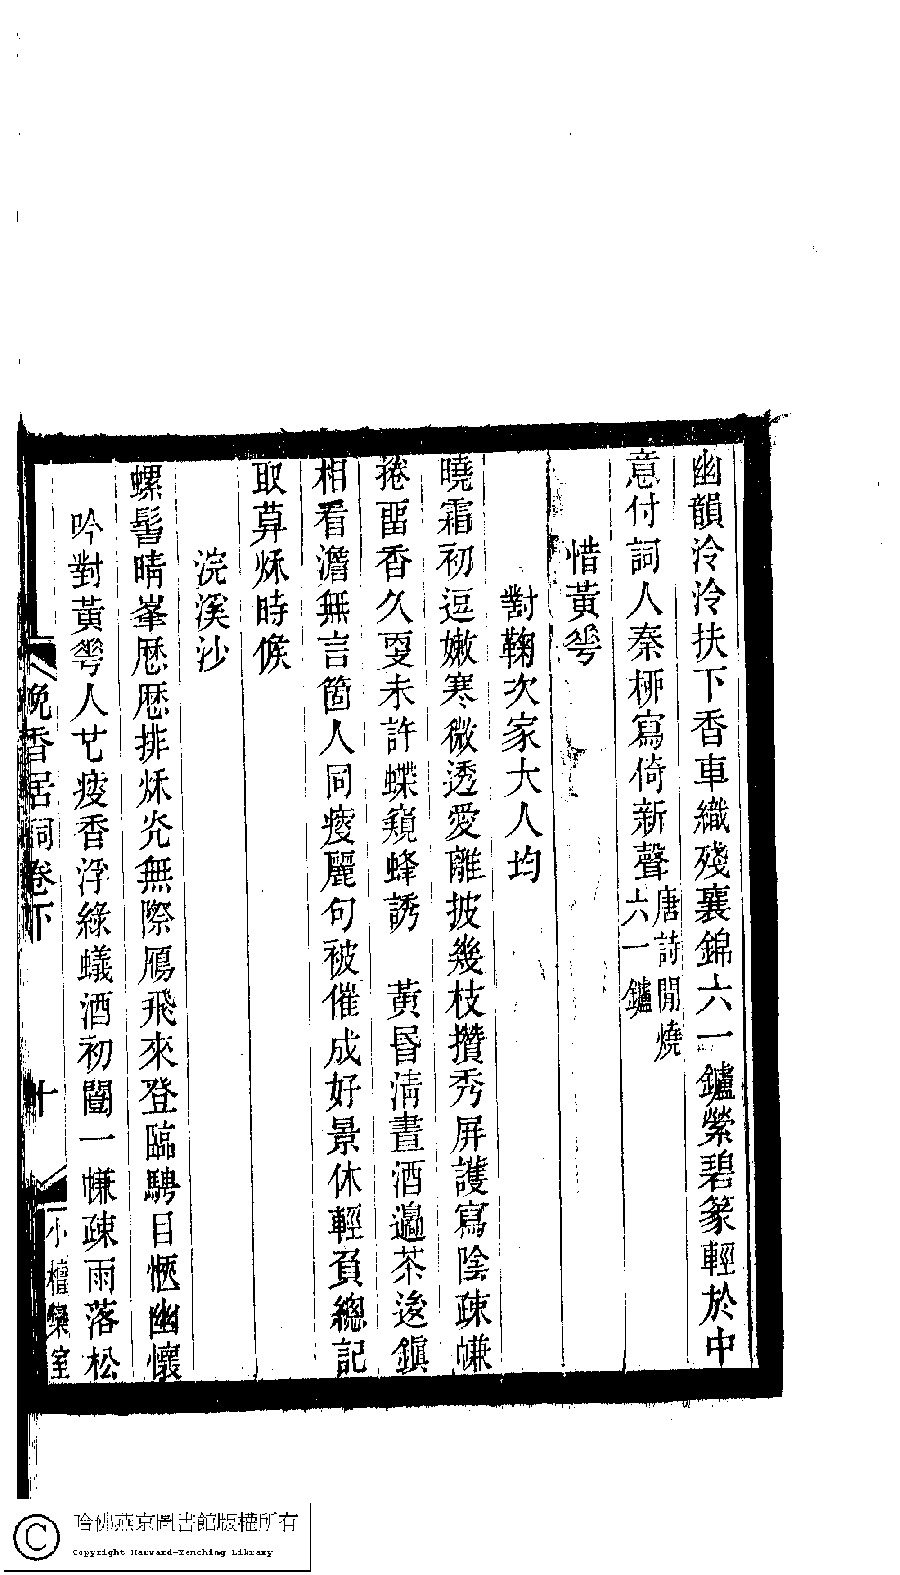 幽韻泠泠扶下香車織殘襄錦六一鑪縈碧篆輕於中
意付詞人秦桺寫倚新聲唐詩閒燒六一鑪
惜黃花
對鞠次家大人均
曉霜初逗嫩寒微透愛離披幾枝攢秀屏護寫陰疎㡘
捲畱香久耎未許蝶窺蜂誘　黃昏清晝酒邊茶後鎭
相看澹無言箇人同瘦麗句被催成好景休輕負總記
取筭烁時候
浣溪沙
螺髻晴峯歷歷排烁光無際鴈飛來登臨騁目愜幽懷
吟對黃花人廿瘦香浮綠蟻酒初闓一㡘疎雨落松
晚香居詞卷下
十
小檀欒室
哈佛燕京圖書館版權所有
Copyright Harvard-Yenching Library